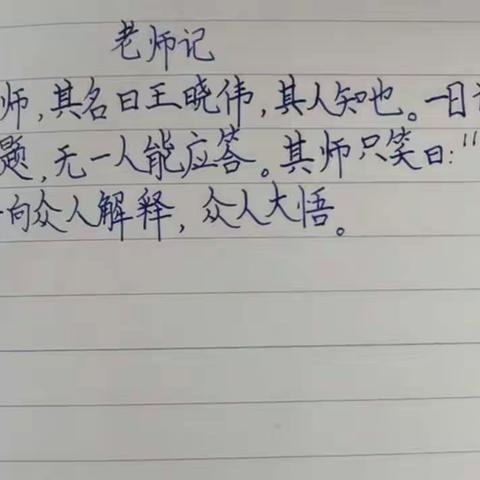 老师记
师,其名曰王晓伟,其人知也。一日
题,无一人能应答。其师只笑曰:"
向众人解释,众人大悟。